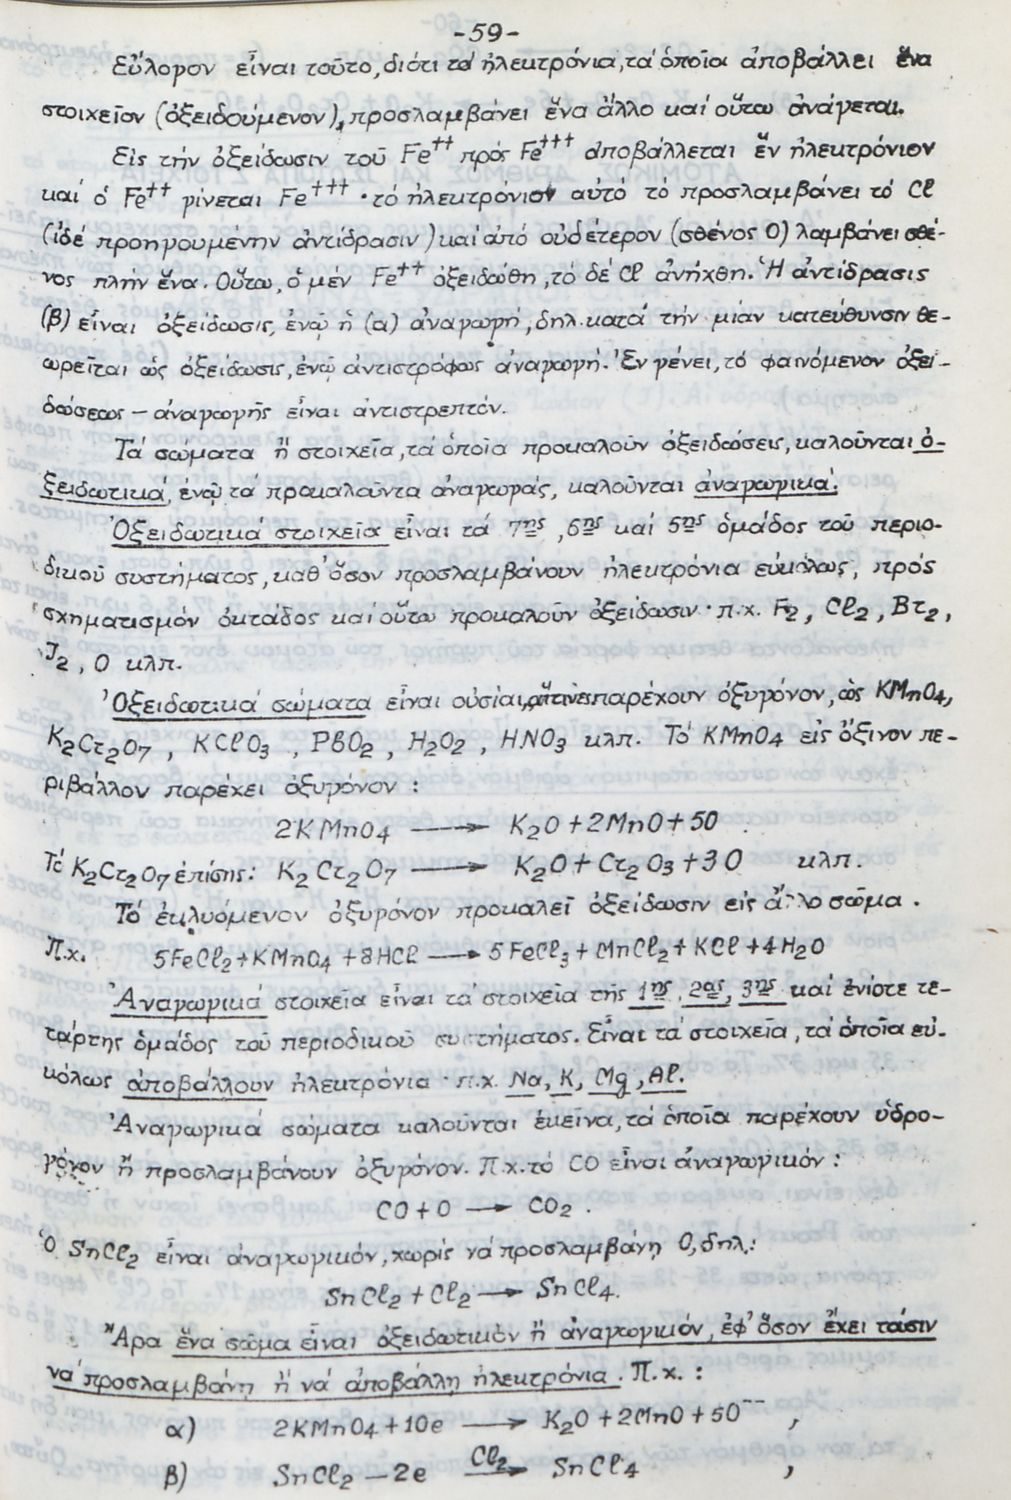 -59-
Εὔλογον εἶναι τοῦτο, διότι τά ἠλεκτρόνια, τά ὁποῖα ἀποβάλλει ἕνα
στοιχεῖον (ὀξειδούμενον), προσλαμβάνει ἕνα ἄλλο καί οὕτω ἀνάγεται.
Εἰς τήν ὀξείδωσιν τοῦ Fe⁺⁺ πρός Fe⁺⁺⁺ ἀποβάλλεται ἕν ἠλεκτρόνιον
καί ὁ Fe⁺⁺ γίνεται Fe⁺⁺⁺ · τό ἠλεκτρόνιον αὐτό τό προσλαμβάνει τό Cl
(ἰδέ προηγουμένην ἀντίδρασιν) καί ἀπό οὐδέτερον (σθένος 0) λαμβάνει σθέ-
νος πλήν ἕνα. Οὕτω, ὁ μέν Fe⁺⁺ ὀξειδώθη, τό δέ Cl ἀνήχθη. Ἡ ἀντίδρασις
(β) εἶναι ὀξείδωσις, ἐνῷ ἡ (α) ἀναγωγή, δηλ. κατά τήν μίαν κατεύθυνσιν θε-
ωρεῖται ὡς ὀξείδωσις, ἐνῷ ἀντιστρόφως ἀναγωγή. Ἐν γένει, τό φαινόμενον ὀξει-
δώσεως – ἀναγωγῆς εἶναι ἀντιστρεπτόν.
Τά σώματα ἤ στοιχεῖα, τά ὁποῖα προκαλοῦν ὀξειδώσεις, καλοῦνται ὀ-
ξειδωτικά, ἐνῷ τά προκαλοῦντα ἀναγωγάς, καλοῦνται ἀναγωγικά.
Ὀξειδωτικά στοιχεῖα εἶναι τά 7ης, 6ης καί 5ης ὁμάδος τοῦ περιο-
δικοῦ συστήματος, καθ' ὅσον προσλαμβάνουν ἠλεκτρόνια εὐκόλως, πρός
σχηματισμόν ὀκτάδος καί οὕτω προκαλοῦν ὀξείδωσιν · π.χ. F₂, Cl₂, Br₂,
J₂, O κλπ.
Ὀξειδωτικά σώματα εἶναι οὐσίαι, αἵτινες παρέχουν ὀξυγόνον, ὡς KMnO₄,
K₂Cr₂O₇, KClO₃, PbO₂, H₂O₂, HNO₃ κλπ. Τό KMnO₄ εἰς ὄξινον πε-
ριβάλλον παρέχει ὀξυγόνον :
2KMnO₄ ⟶ K₂O + 2MnO + 5O
Τό K₂Cr₂O₇ ἐπίσης: K₂Cr₂O₇ ⟶ K₂O + Cr₂O₃ + 3O κλπ.
Τό ἐκλυόμενον ὀξυγόνον προκαλεῖ ὀξείδωσιν εἰς ἄλλο σῶμα.
Π.χ. 5FeCl₂ + KMnO₄ + 8HCl ⟶ 5FeCl₃ + MnCl₂ + KCl + 4H₂O
Ἀναγωγικά στοιχεῖα εἶναι τά στοιχεῖα τῆς 1ης, 2ας, 3ης καί ἐνίοτε τε-
τάρτης ὁμάδος τοῦ περιοδικοῦ συστήματος. Εἶναι τά στοιχεῖα, τά ὁποῖα εὐ-
κόλως ἀποβάλλουν ἠλεκτρόνια · π.χ. Na, K, Mg, Al.
Ἀναγωγικά σώματα καλοῦνται ἐκεῖνα, τά ὁποῖα παρέχουν ὑδρο-
γόνον ἤ προσλαμβάνουν ὀξυγόνον. Π.χ. τό CO εἶναι ἀναγωγικόν :
CO + O ⟶ CO₂.
Ὁ SnCl₂ εἶναι ἀναγωγικόν, χωρίς νά προσλαμβάνῃ O, δηλ.:
SnCl₂ + Cl₂ ⟶ SnCl₄.
Ἄρα ἕνα σῶμα εἶναι ὀξειδωτικόν ἤ ἀναγωγικόν, ἐφ' ὅσον ἔχει τάσιν
νά προσλαμβάνῃ ἤ νά ἀποβάλλῃ ἠλεκτρόνια. Π.χ. :
α) 2KMnO₄ + 10e ⟶ K₂O + 2MnO + 5O⁻⁻ ,
β) SnCl₂ – 2e Cl₂⟶ SnCl₄ ,